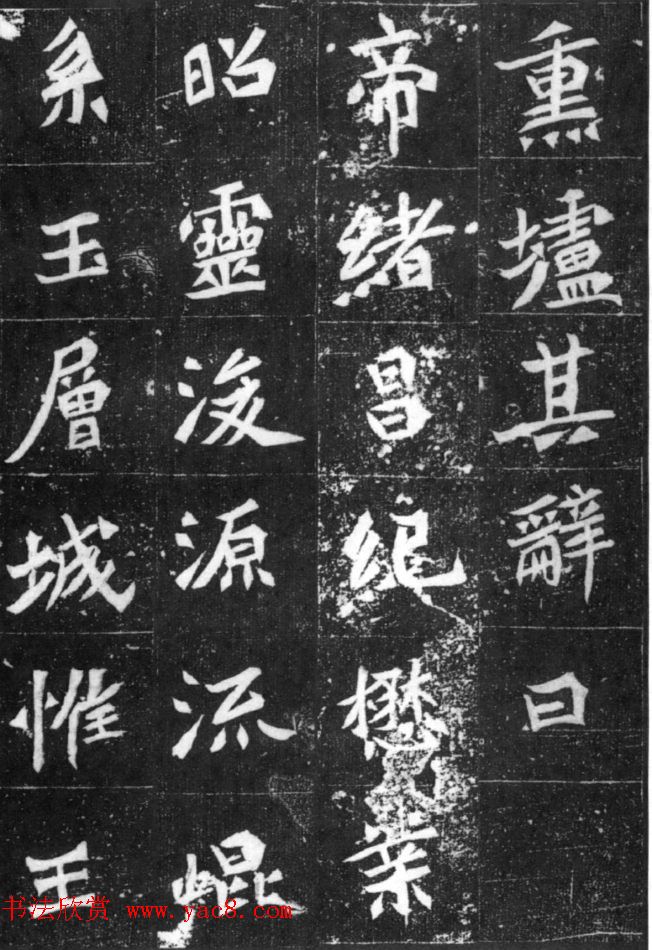 熏壚其辭曰
帝緒昌紀懋業
昭靈浚源流崐
系玉層城惟王
书法欣赏 www.yac8.com